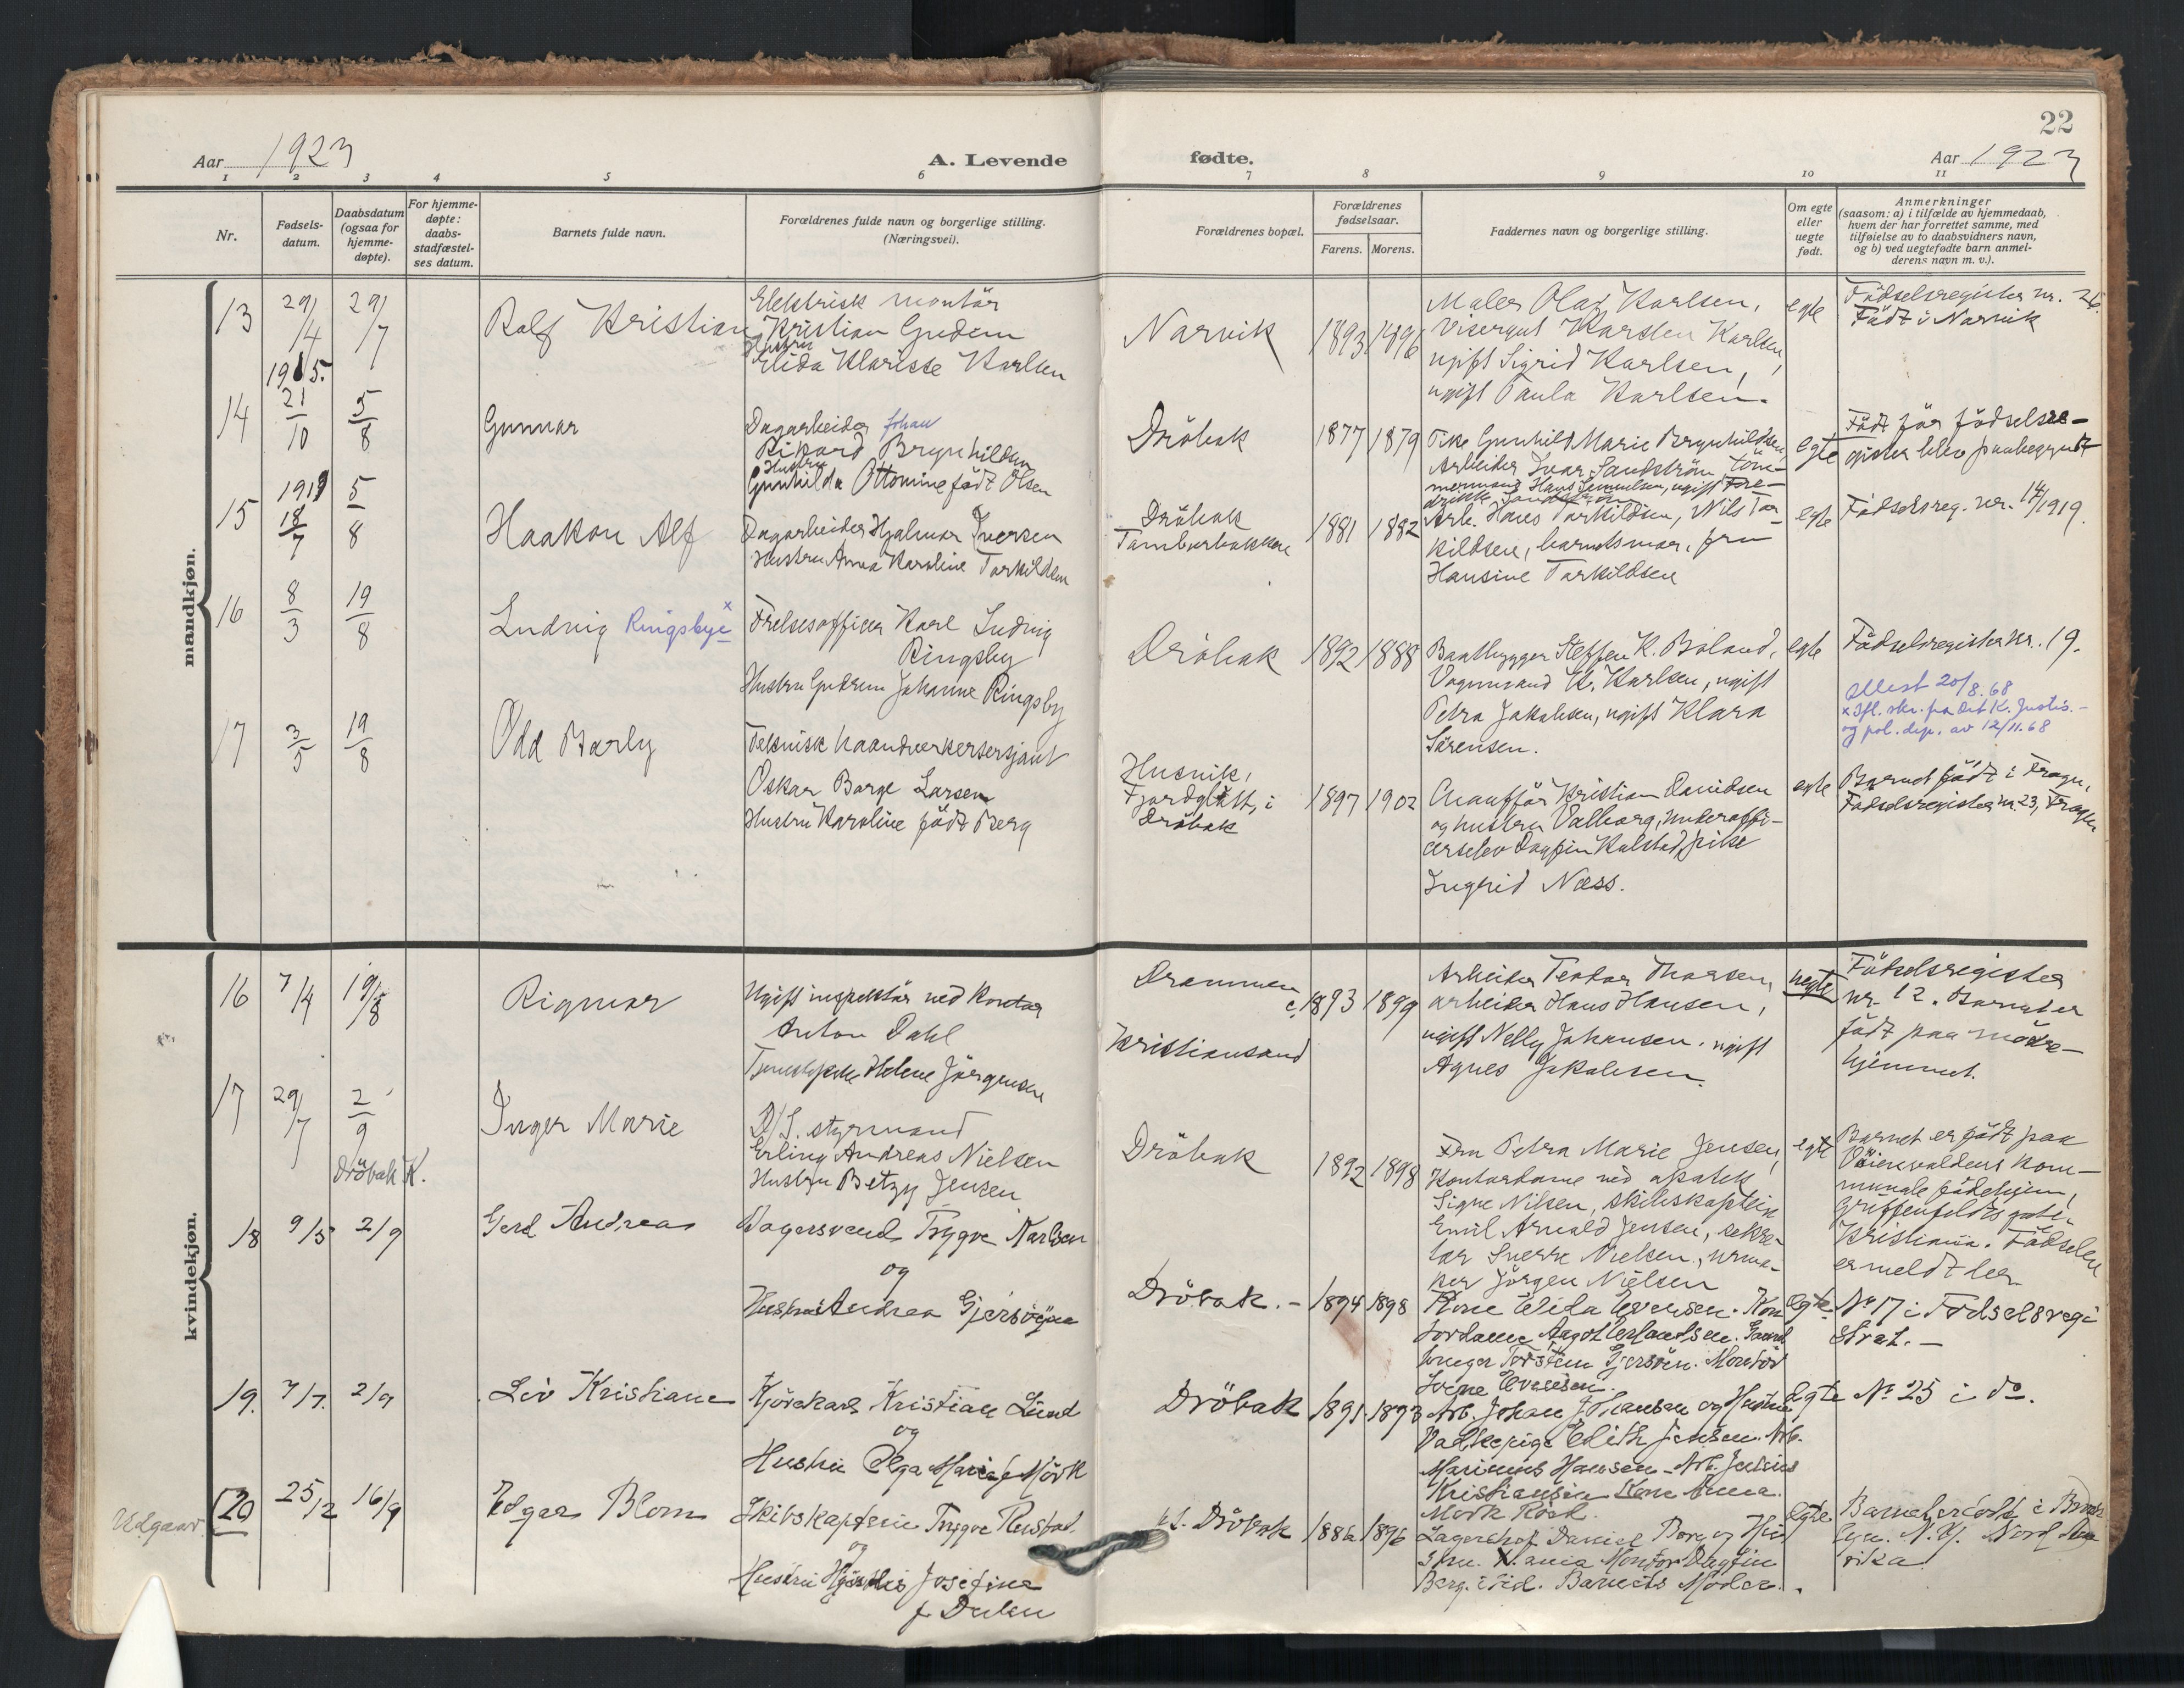 22
Aar 1923
A. Levende
fødte.
Aar 1923
1 2 3 4 5 6 7 8 9 10 11
Nr.
Fødsels-
datum.
Daabsdatum
(ogsaa for
hjemme-
døpte).
For hjemme-
døpte:
daabs-
stadfæstel-
ses datum.
Barnets fulde navn.
Forældrenes fulde navn og borgerlige stilling.
(Næringsvei).
Forældrenes bopæl.
Forældrenes
fødselsaar.
Farens. Morens.
Faddernes navn og borgerlige stilling.
Om egte
eller
uegte
født.
Anmerkninger
(saasom: a) i tilfælde av hjemmedaab,
hvem der har forrettet samme, med
tilføielse av to daabsvidners navn,
og b) ved uegtefødte barn anmel-
derens navn m. v.).
mandkjøn.
13 29/4 29/7
Rolf Kristian
Elektrisk montör
Kristian Gudem
Hustru
Elida Klarisse Karlsen
Narvik
1893 1896
Maler Olaf Karlsen,
Visergut Karsten Karlsen,
ugift Sigrid Karlsen,
ugift Paula Karlsen.
egte
Födselsregister nr. 26.
Född i Narvik
1915.
14 21/10 5/8
Gunnar
Dagarbeider Johan
Rikard Brynhildsen
Hustru
Gunhilda Ottomine född Olsen
Dröbak
1877 1879
Pike Gunhild Marie Brynhildsen,
Arbeider Ivar Sandström, töm-
mermand Hans Samuelsen, ugift Fre-
drikke Sandström
egte
Född för födselsre-
gister blev paabegyndt
1919
15 18/7 5/8
Haakon Alf
Dagarbeider Hjalmar Iversen
Hustru Anna Karoline Torkildsen
Dröbak
Tamburbakken
1881 1882
Arb. Hans Torkildsen, Nils Tor-
kildsen, barnets mor, fru
Hansine Torkildsen
egte
Fødselsreg. nr. 14/1919.
16 8/3 19/8
Ludvig Ringsbye x
Frelsesofficer Karl Ludvig
Ringsby
Hustru Gudrun Johanne Ringsby
Dröbak
1892 1888
Baatbygger Steffen K. Boland,
Vognmand K. Karlsen, ugift
Petra Jakobsen, ugift Klara
Sörensen.
egte
Födselsregister nr. 19.
Attest 20/8.68
x Ifl. skr. fra Det K. Justis.-
og pol. dep. av 12/11.68
17 3/5 19/8
Odd Barly
Teknisk haandverkersersjant
Oskar Borge Larsen
Hustru Karoline född Berg
Husvik,
Fjordglött, i
Dröbak
1897 1902
Chafför Kristian Davidsen
og hustru Valborg, underoffi-
cerselev Dagfin Kalstad, pike
Ingrid Næss.
egte
Barnet född i Frogn,
Fødselsregister nr 23, Frogn
kvindekjøn.
16 7/4 19/8
Rigmor
Ugift inspektör ved kontor
Anton Dahl
Tjenestepike Helene Jörgensen
Drammen
Kristiansand
c. 1893 1899
Arbeider Teodor Thorsen,
arbeider Hans Hansen,
ugift Nelly Johansen, ugift
Agnes Jakobsen.
uegte
Födselsregister
nr. 12. Barnet er
född paa mödre-
hjemmet.
17 29/7 2/9
Dröbak K.
Inger Marie
D/S. styrmand
Erling Andreas Nielsen
Hustru Betzy Jensen
Dröbak
1892 1898
Fru Petra Marie Jensen,
Kontordame ved apotek
Signe Nilsen, skibskaptein
Emil Arnold Jensen, sekre-
tær Sverre Nielsen, urma-
ker Jörgen Nielsen
egte
Barnet er född paa
Vöienvoldens kom-
munale födehjem,
Griffenfeldts gate,
Kristiania. Födselen
er meldt her.
18 9/5 2/9
Gerd Andrea
Bagersvend Trygve Karlsen
og
Hustru Andrea Gjersöyen
Dröbak. -
1894 1898
Kone Elida Evensen. Kon
tordame Aagot Erlandsen. Gaard
bruger Torstein Gjersöen. Montör
Sverre Evensen
Egte
No 17 i Fodselsregi
stret. -
19. 7/7. 2/9
Liv Kristiane
Kjörekarl Kristian Lund
og
Hustru Olga Marie f. Mörk
Dröbak
1891 1893
Arb. Johan J. Hansen og Hustru
Vaskepige Edith Jensen. Arb.
Marinius Hansen - Arb. Julius
Kristiansen Kone Anna
Mork Röed.
Egte
No 25 i do.
Udgaar
20 25/12 16/9
Edgar Blom
Skibskaptein Trygve Rustad.
og
Hustru Hjördis Josefine
Dröbak
1886 1896
Lagerchef Daniel Borg og Hustru
Montör Dagfin
Berg. Barnets Moder.
Egte
Barnet er födt i Brook-
lyn. N.Y. Nord Ame
rika